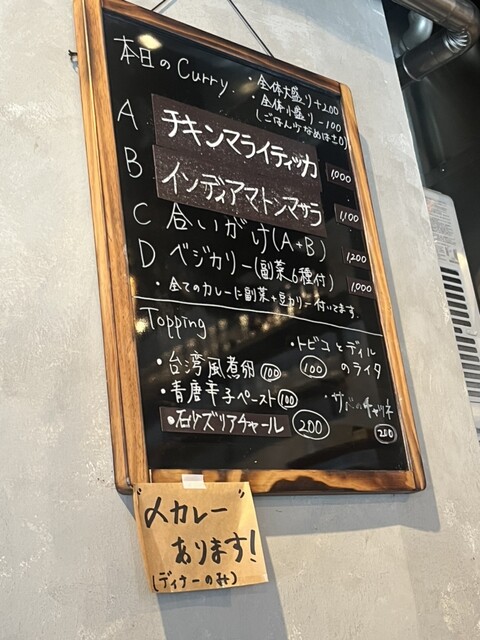 本日のCurry.
・全体大盛り+200
・全体小盛り-100
(ごはん少なめは±0)
A チキンマライティッカ 1,000
B インディアマトンマサラ 1,100
C 合いがけ(A+B) 1,200
D ベジカリー(副菜6種付) 1,000
・全てのカレーに副菜+豆カリー付いてます.
Topping
・台湾風煮卵 100
・青唐辛子ペースト 100
アチャール 200
・トビコとディルのライタ
100
200
"〆カレー"
あります!
(ディナーのみ)